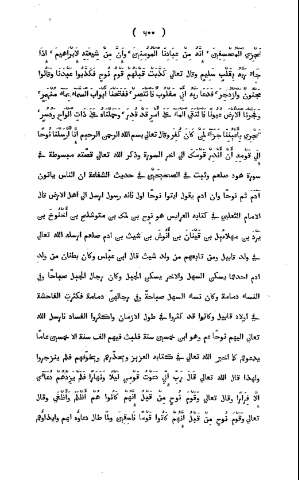 ( ٦٠٠ )
نَجْزِي الْمُحْسِنِينَ إِنَّهُ مِنْ عِبَادِنَا الْمُؤْمِنِينَ وَإِنَّ مِنْ شِيعَتِهِ لَإِبْرَاهِيمَ إِذْ
جَاءَ رَبَّهُ بِقَلْبٍ سَلِيمٍ وقال تعالى كَذَّبَتْ قَبْلَهُمْ قَوْمُ نُوحٍ فَكَذَّبُوا عَبْدَنَا وَقَالُوا
مَجْنُونٌ وَازْدُجِرَ فَدَعَا رَبَّهُ أَنِّي مَغْلُوبٌ فَانْتَصِرْ فَفَتَحْنَا أَبْوَابَ السَّمَاءِ بِمَاءٍ مُنْهَمِرٍ
وَفَجَّرْنَا الْأَرْضَ عُيُونًا فَالْتَقَى الْمَاءُ عَلَى أَمْرٍ قَدْ قُدِرَ وَحَمَلْنَاهُ عَلَى ذَاتِ أَلْوَاحٍ وَدُسُرٍ
تَجْرِي بِأَعْيُنِنَا جَزَاءً لِمَنْ كَانَ كُفِرَ وقال تعالى بسم الله الرحمن الرحيم إِنَّا أَرْسَلْنَا نُوحًا
إِلَى قَوْمِهِ أَنْ أَنْذِرْ قَوْمَكَ الى اخر السورة وذكر الله تعالى قصّته مبسوطة في
سورة هود صلعم وثبت في الصحيحين في حديث الشفاعة ان الناس ياتون
آدم ثم نوحا وان آدم يقول ايتوا نوحا اول فانه رسول ارسل الى اهل الارض قال
الامام الثعلبي في كتابه العرايس هو نوح بن لمك بن متوشلخ بن اخنوخ بن
يَرْد بن مهلاييل بن قَيْنان بن أَنُوش بن شيث بن آدم صلعم ارسله الله تعالى
في ولد قابيل ومن تابعهم من ولد شيث قال ابن عباس وكان بطنان من ولد
آدم احدهما يسكن السهل والاخر يسكن الجبل وكان رجال الجبل صباحا وفي
النساء دمامة وكان نساء السهل صباحا وفي رجالهن دمامة فكثرت الفاحشة
في اولاد قابيل وكانوا قد كثروا في طول الازمان واكثروا الفساد فارسل الله
تعالى اليهم نوحا وهو ابن خمسين سنة فلبث فيهم الف سنة الا خمسين عاما
يدعوهم كما اخبر الله تعالى في كتابه العزيز ويحذرهم ويخوفهم فلم ينزجروا
ولهذا قال الله تعالى قَالَ رَبِّ إِنِّي دَعَوْتُ قَوْمِي لَيْلًا وَنَهَارًا فَلَمْ يَزِدْهُمْ دُعَائِي
إِلَّا فِرَارًا وقال تعالى وَقَوْمَ نُوحٍ مِنْ قَبْلُ إِنَّهُمْ كَانُوا هُمْ أَظْلَمَ وَأَطْغَى وقال
تعالى وَقَوْمَ نُوحٍ مِنْ قَبْلُ إِنَّهُمْ كَانُوا قَوْمًا فَاسِقِينَ ولما طال دعاؤه لهم وايذاؤهم